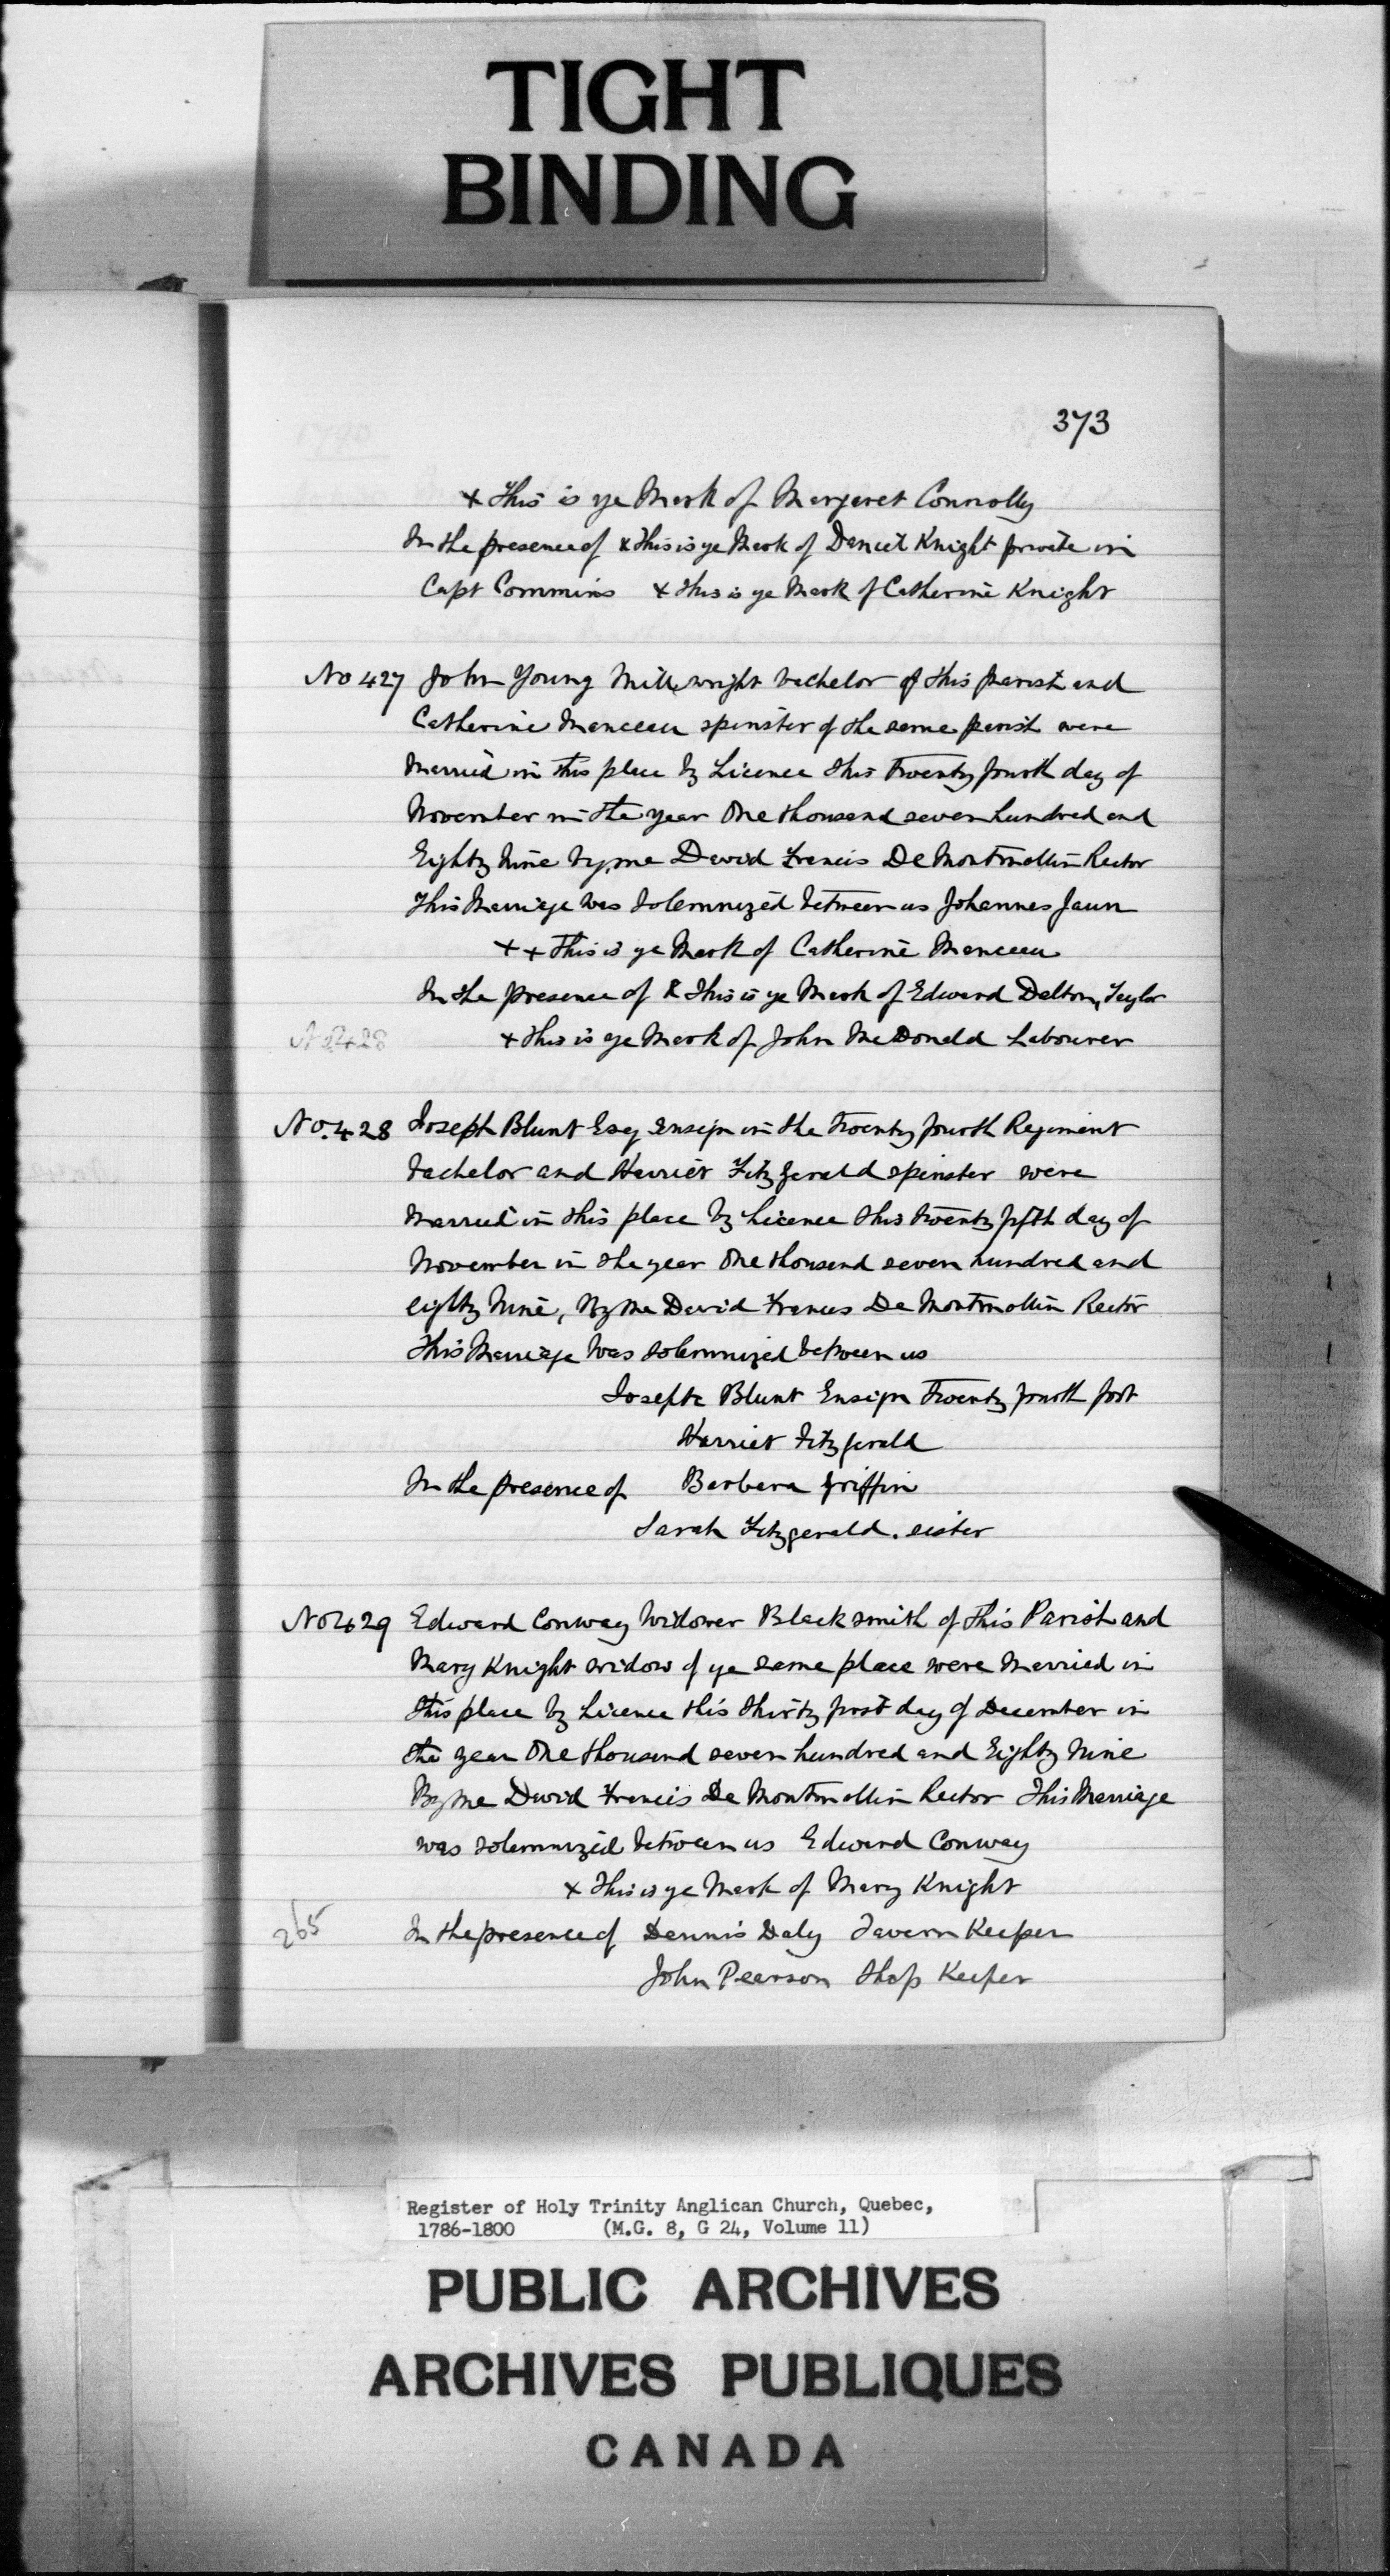 TIGHT
BINDING
373
x This is ye Mark of Margaret Connolly
In the presence of x This is ye Mark of Daniel Knight private in
Capt Commins x This is ye Mark of Catherine Knight
No 427 John Young Millwright bachelor of this parish and
Catherine Manceau spinster of the same parish were
Married in this place by Licence this Twenty fourth day of
November in the year One thousand seven hundred and
Eighty Nine by me David Francis De Montmollin Rector
This Marriage was Solemnized between us Johannes Jaun
x x This is ye Mark of Catherine Manceau
In the presence of x This is ye Mark of Edward Dalton, Taylor
No 428 x This is ye Mark of John McDonald Labourer
No. 428 Joseph Blunt Esq Ensign in the Twenty fourth Regiment
bachelor and Harriet Fitzgerald spinster were
Married in this place by Licence this twenty fifth day of
November in the year One thousand seven hundred and
eighty Nine, By me David Frances De Montmollin Rector
This Marriage was solemnized between us
Joseph Blunt Ensign Twenty fourth foot
Harriet Fitzgerald
In the presence of Barbara Griffin
Sarah Fitzgerald. sister
No 429 Edward Conway Widower Blacksmith of this Parish and
Mary Knight widow of ye same place were Married in
this place by Licence this thirty first day of December in
the year One thousand seven hundred and Eighty Nine
By me David Francis De Montmollin Rector This Marriage
was solemnized between us Edward Conway
x This is ye Mark of Mary Knight
265 In the presence of Dennis Daly Tavern Keeper
John Pearson Shop Keeper
Register of Holy Trinity Anglican Church, Quebec,
1786-1800 (M.G. 8, G 24, Volume 11)
PUBLIC ARCHIVES
ARCHIVES PUBLIQUES
CANADA